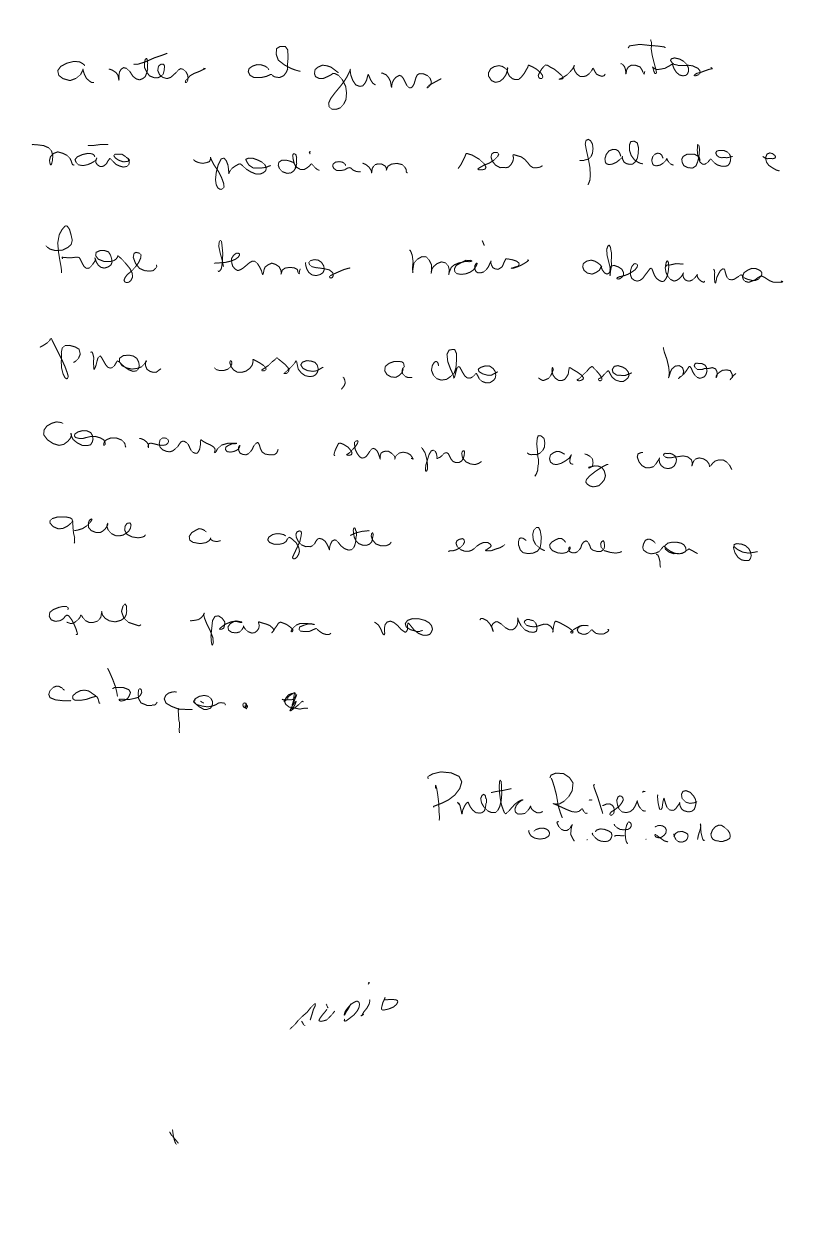 antes alguns assuntos
não podiam ser falado e
hoje temos mais abertura
pra isso, acho isso bom
conversar sempre faz com
que a gente esclareça o
que passa na nossa
cabeça.
Preta Ribeiro
04.07.2010
AUDIO
x